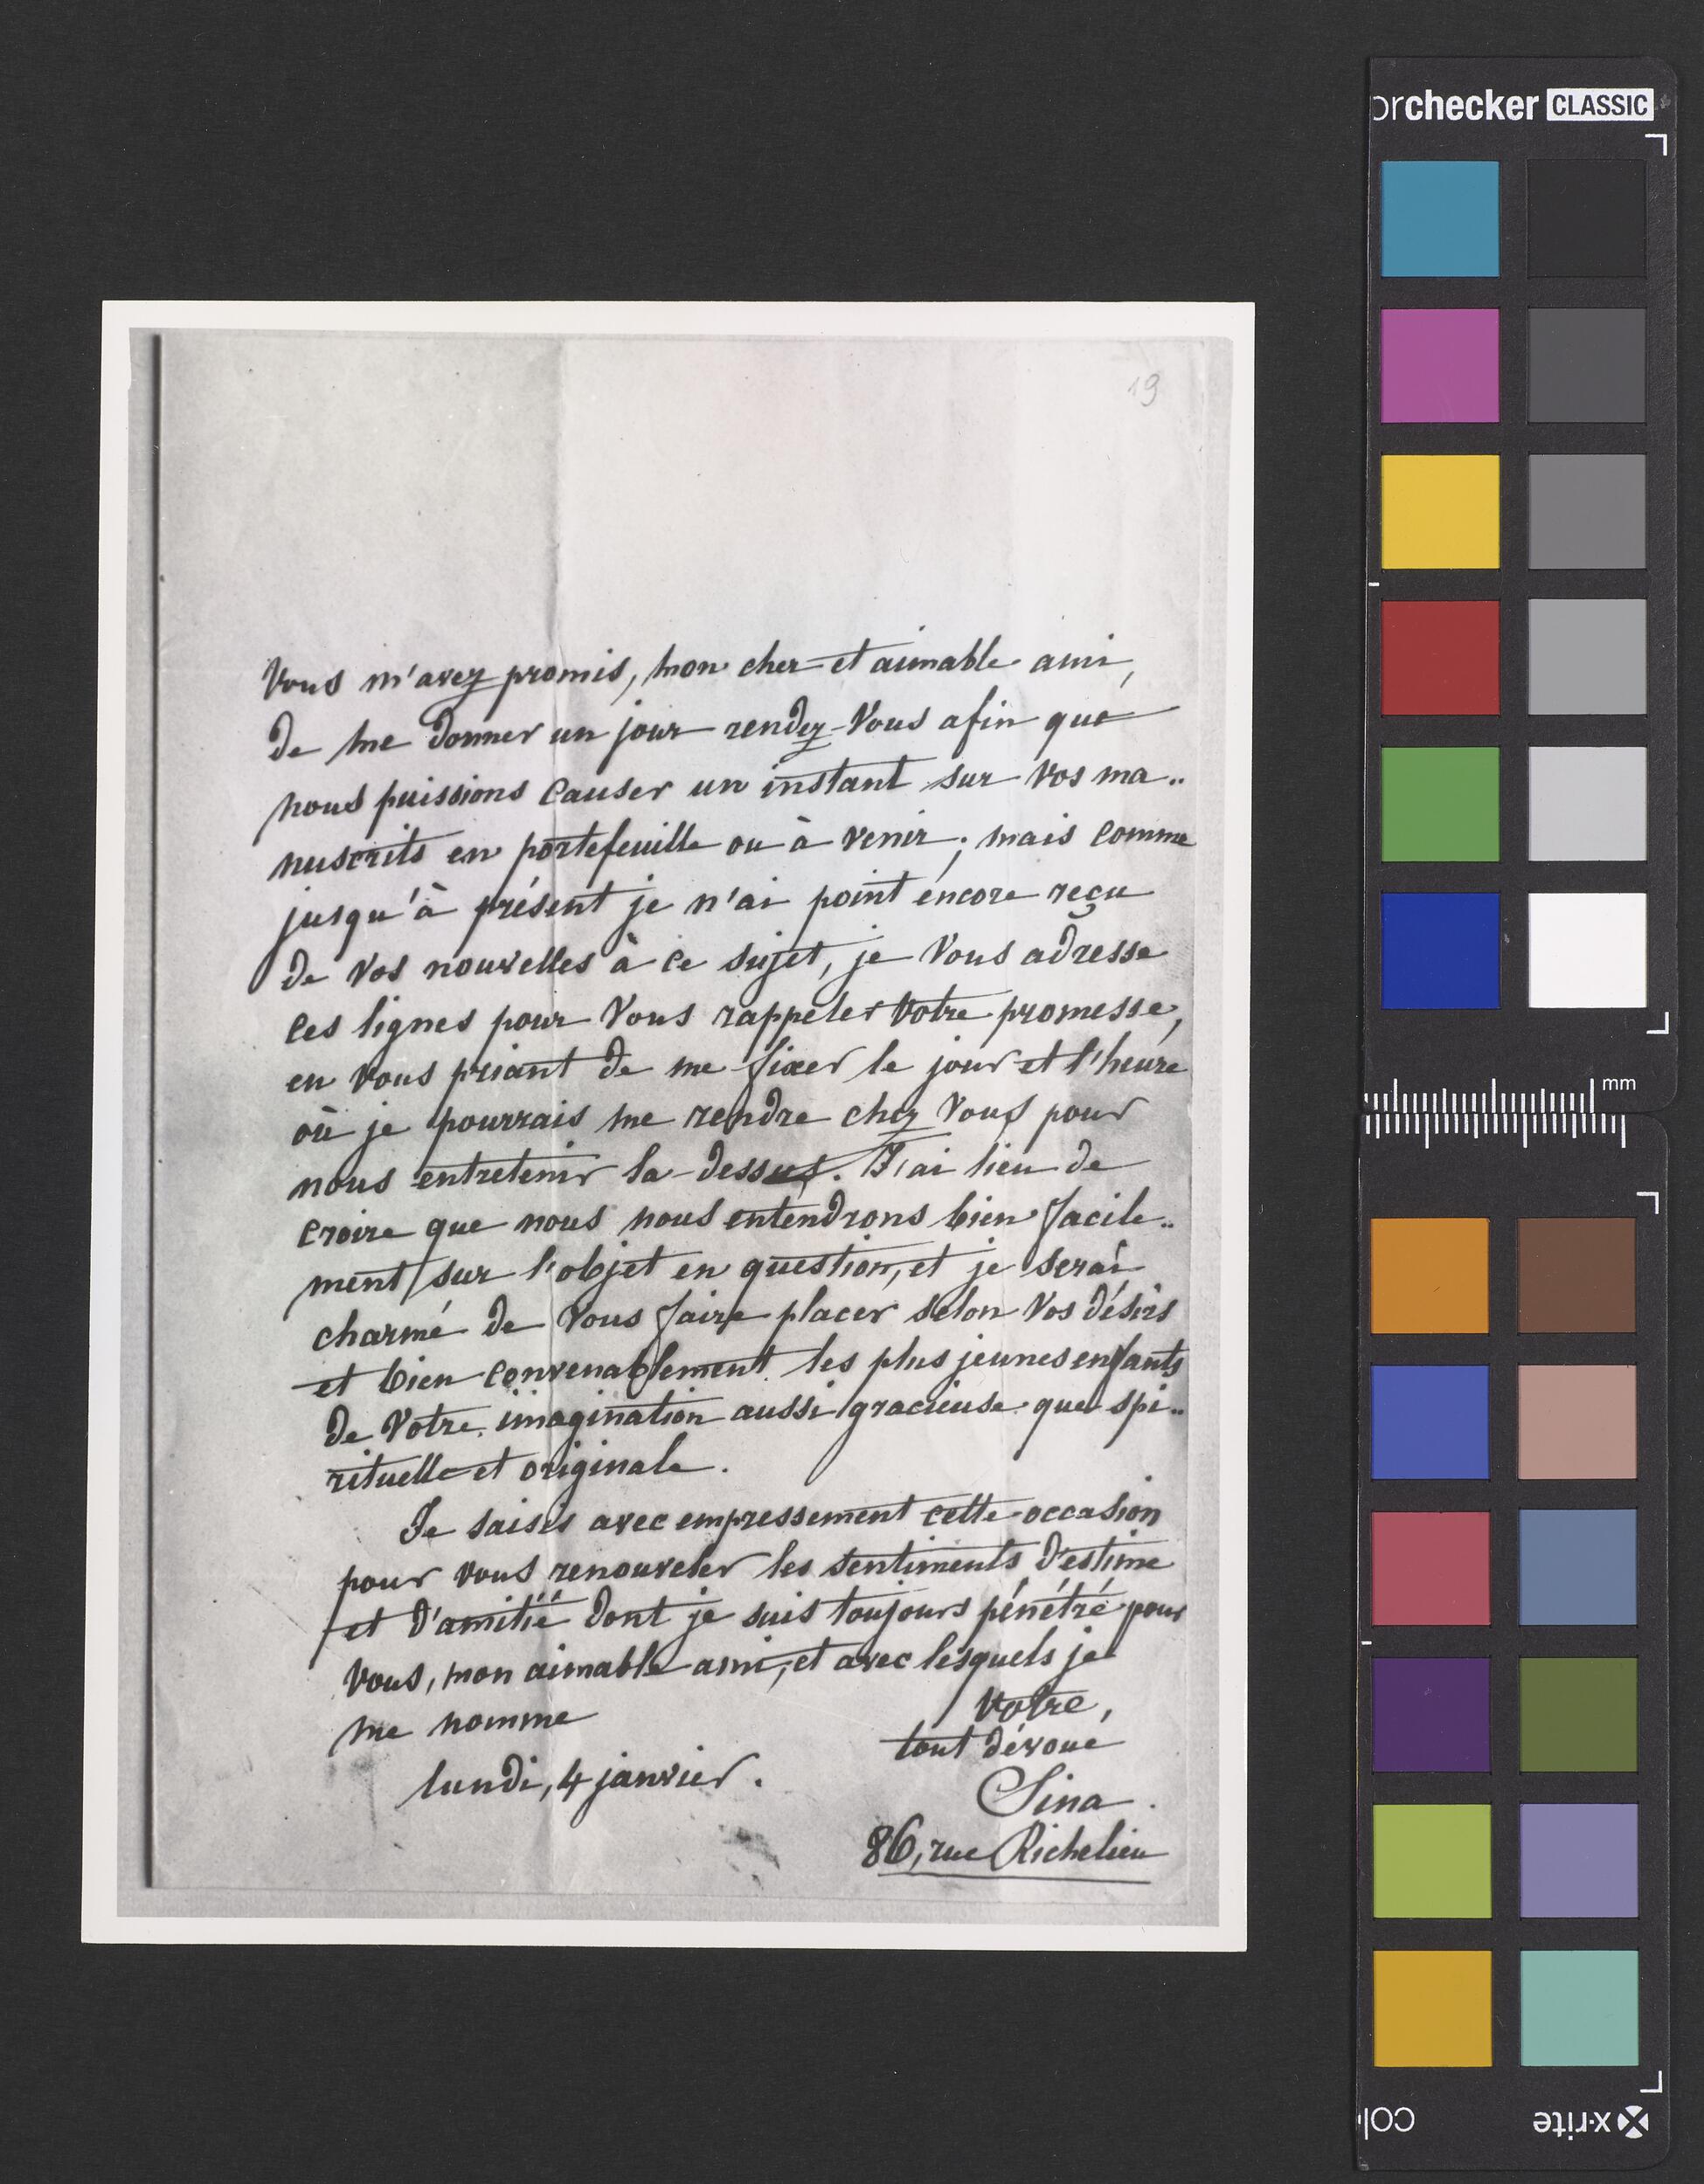 19
Vous m'avez promis, mon cher et aimable ami,
de me donner un jour rendez-Vous afin que
nous puissions causer un instant sur vos ma..
nuscrits en portefeuille ou à venir; mais comme
jusqu'à présent je n'ai point éncore reçu
de vos nouvelles à ce sujet, je Vous adresse
ces lignes pour Vous rappeler votre promesse,
en vous priant de me fixer le jour et l'heure
où je pourrais me rendre chez Vous pour
nous entretenir la-dessus. J'ai lieu de
croire que nous nous entendrons bien facile..
ment sur l'objet en question, et je serai
charmé de Vous faire placer selon Vos désirs
et bien convenablement les plus jeunes enfants
de Votre imagination aussi gracieuse que spi..
rituelle et originale.
Je saisis avec empressement cette occasion
pour vous renouveler les sentiments d'estime
et d'amitié dont je suis toujours pénétré pour
vous, mon aimable ami, et avec lesquels je
me nomme
Votre,
tout dévoué
lundi, 4 janvier.
Sina.
86, rue Richelieu
orchecker CLASSIC
mm
x-rite
col